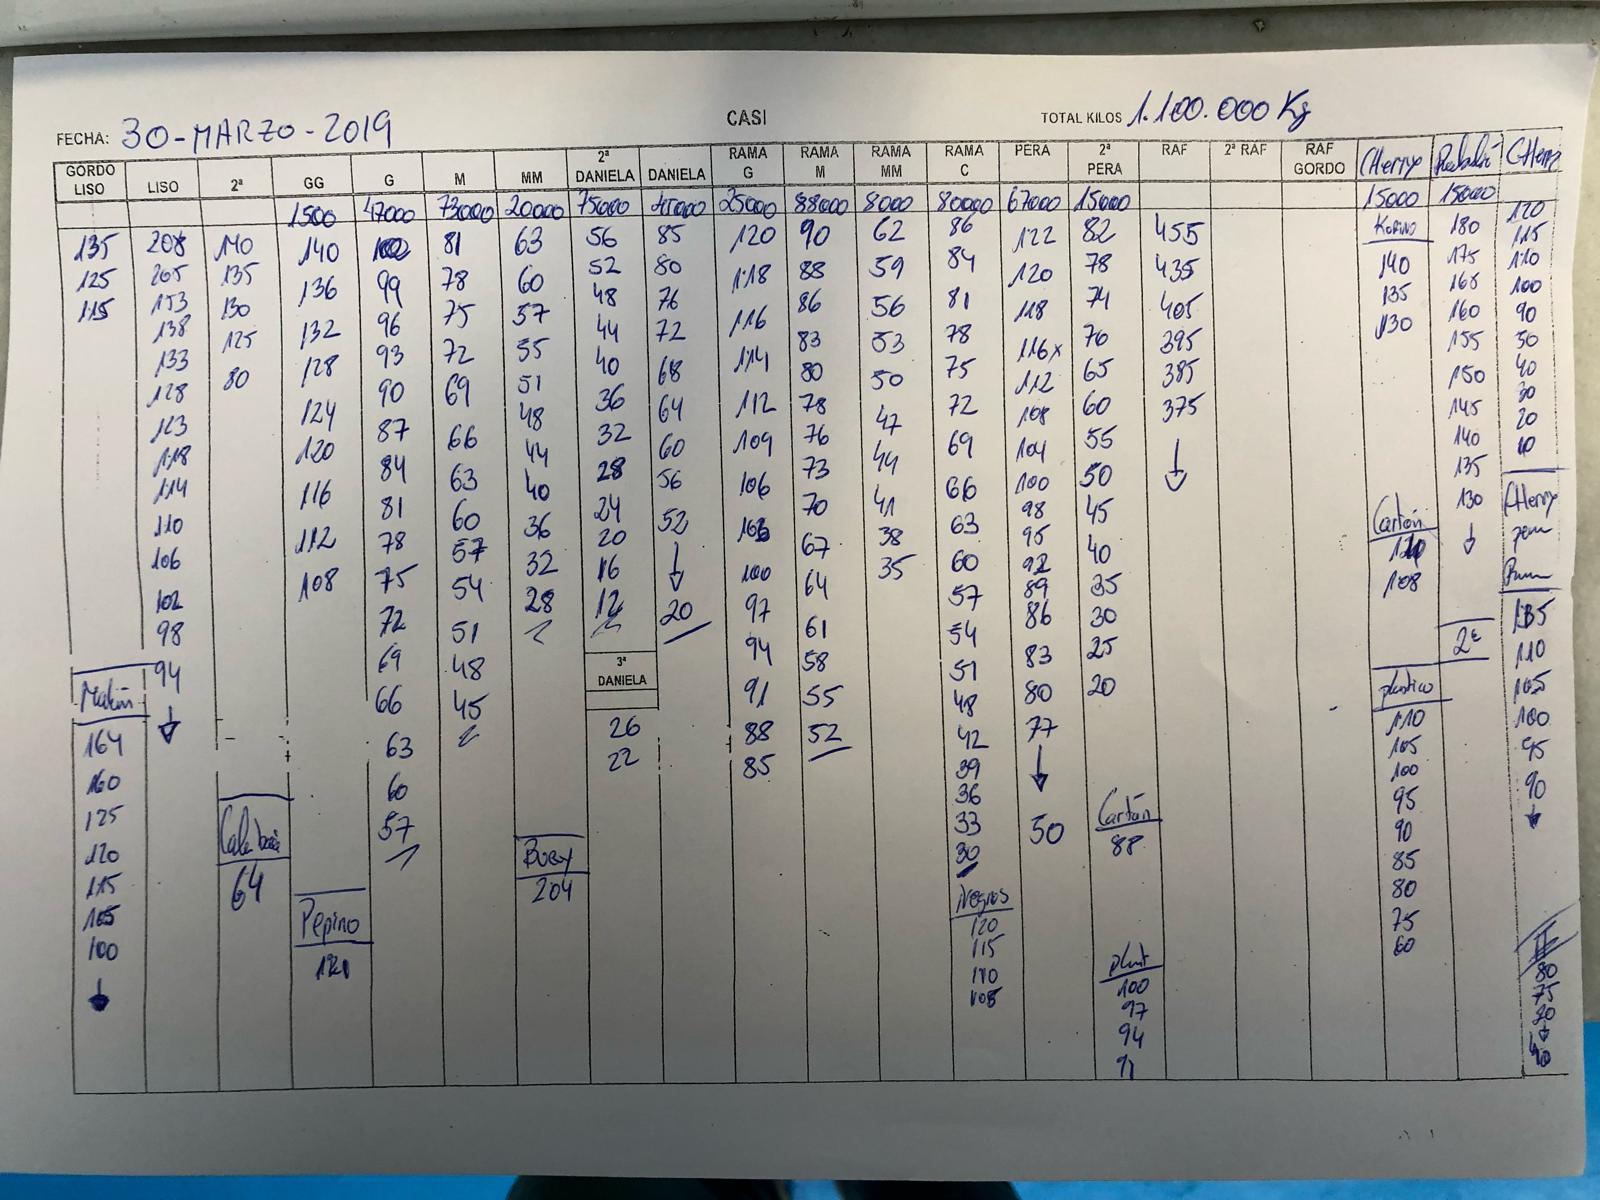 FECHA: 30-MARZO-2019 CASI TOTAL KILOS 1.100.000 Kg
GORDO LISO
135
125
115
164
160
125
120
115
105
100
LISO
208
205
153
138
133
128
123
118
114
110
106
102
98
94
2ª
140
135
130
125
80
64
GG
1500
140
136
132
128
124
120
116
112
108
Pepino
G
47000
102
99
96
93
90
87
84
81
78
75
72
69
66
63
60
57
M
73000
81
78
75
72
69
66
63
60
57
54
51
48
45
MM
20000
63
60
57
55
51
48
44
40
36
32
28
204
2ª DANIELA
75000
56
52
48
44
40
36
32
28
24
20
16
12
3ª DANIELA
26
22
DANIELA
85
80
76
72
68
64
60
56
52
20
RAMA G
25000
120
118
116
114
112
109
106
103
100
97
94
91
88
85
RAMA M
88000
90
88
86
83
80
78
76
73
70
67
64
61
58
55
52
RAMA MM
8000
62
59
56
53
50
47
44
41
38
35
RAMA C
80000
86
84
81
78
75
72
69
66
63
60
57
54
51
48
42
39
36
33
30
Negros
120
115
110
105
PERA
67000
122
120
118
116x
112
108
104
100
98
95
92
89
86
83
80
77
50
2ª PERA
15000
82
78
74
70
65
60
55
50
45
40
35
30
25
20
Cartón
88
100
97
94
91
RAF
455
435
405
395
385
375
2ª RAF
RAF GORDO
CHerrys
15000
140
135
130
Cartón
108
plastico
110
105
100
95
90
85
80
75
60
15000
180
175
168
160
155
150
145
140
135
130
CHerry
120
115
110
100
90
40
30
20
10
CHerry
110
105
100
95
90
80
75